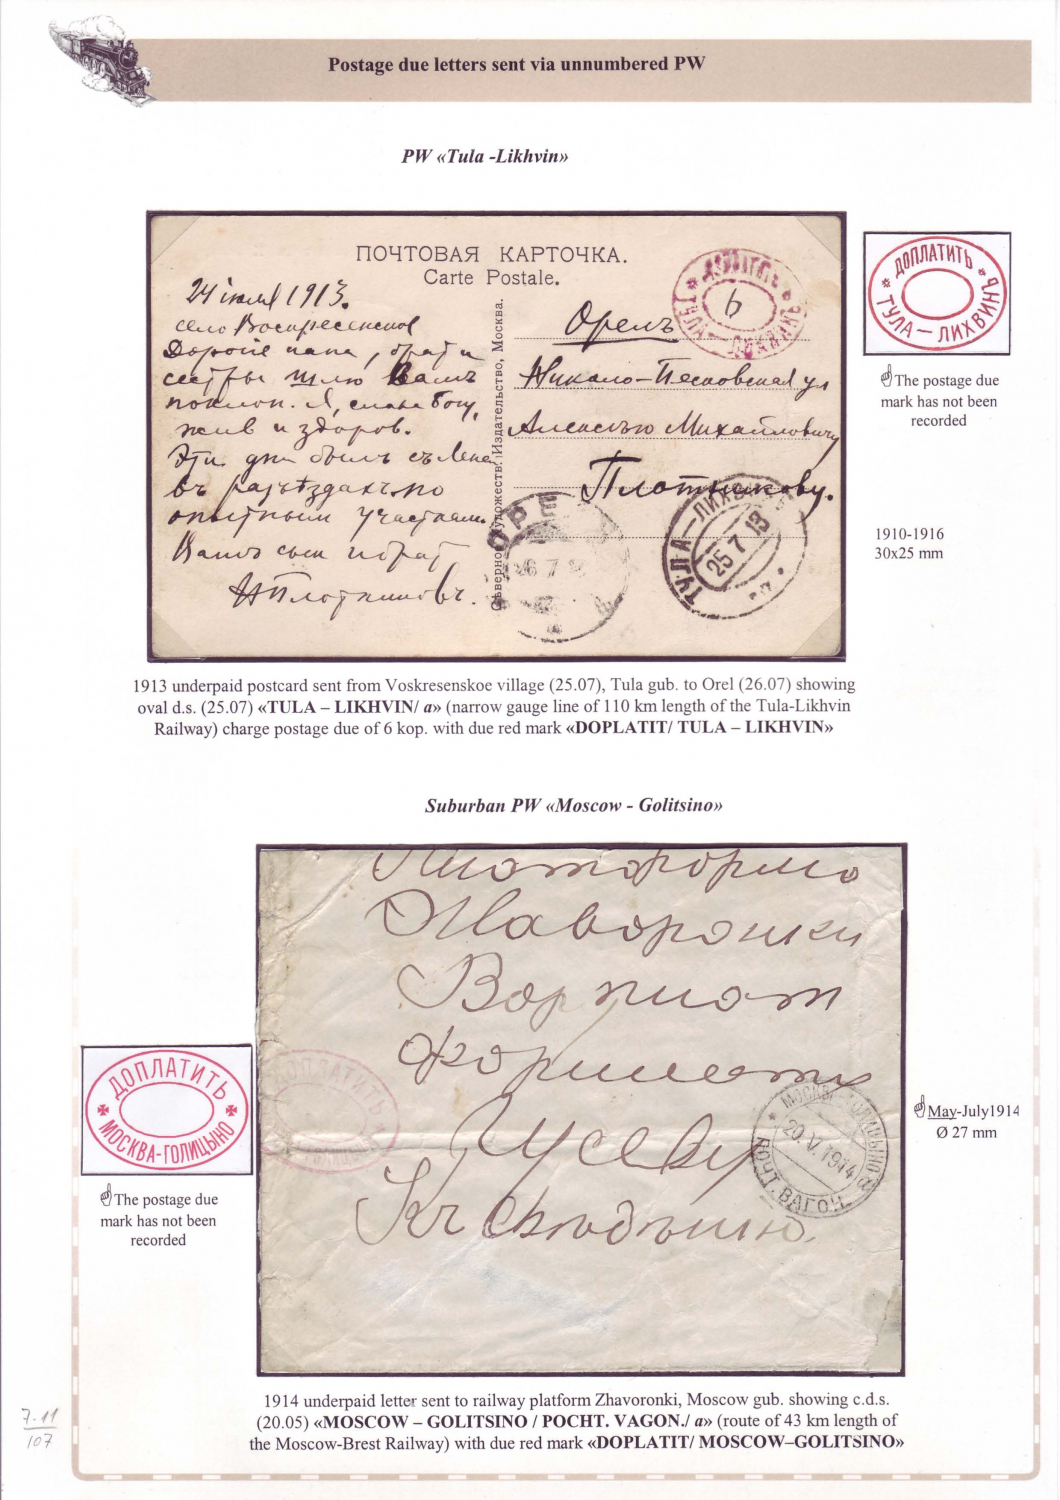 Postage due letters sent via unnumbered PW
PW «Tula -Likhvin»
ПОЧТОВАЯ КАРТОЧКА.
Carte Postale.
24 июля 1913.
село Воскресенское
Дорогие папа, братья
сестры шлю Вамъ
поклон. Я, слава Богу,
жив и здоров.
Эти дни былъ съ
въ разъѣздахъ по
опытным участкам.
Вашъ сын и брат
НПлотниковъ.
Издательство, Москва.
Орелъ
Николо-Песковская ул
Алексѣю Михайловичу
Плотникову.
ДОПЛАТИТЬ
ТУЛА – ЛИХВИНЪ
6
ОРЕ
26 7
ТУЛА – ЛИХВИНЪ
25 7 13
ДОПЛАТИТЬ
ТУЛА – ЛИХВИНЪ
The postage due
mark has not been
recorded
1910-1916
30x25 mm
1913 underpaid postcard sent from Voskresenskoe village (25.07), Tula gub. to Orel (26.07) showing
oval d.s. (25.07) «TULA – LIKHVIN/ a» (narrow gauge line of 110 km length of the Tula-Likhvin
Railway) charge postage due of 6 kop. with due red mark «DOPLATIT/ TULA – LIKHVIN»
Suburban PW «Moscow - Golitsino»
Платформа
Жаворонки
Вор плат
форматъ
Гусеву
Къ Свѣдѣнию
ДОПЛАТИТЬ
МОСКВА-ГОЛИЦЫНО а
20.V.1914
ПОЧТ. ВАГОН.
ДОПЛАТИТЬ
МОСКВА-ГОЛИЦЫНО
The postage due
mark has not been
recorded
May-July1914
Ø 27 mm
1914 underpaid letter sent to railway platform Zhavoronki, Moscow gub. showing c.d.s.
(20.05) «MOSCOW – GOLITSINO / POCHT. VAGON./ a» (route of 43 km length of
the Moscow-Brest Railway) with due red mark «DOPLATIT/ MOSCOW–GOLITSINO»
7.11
107